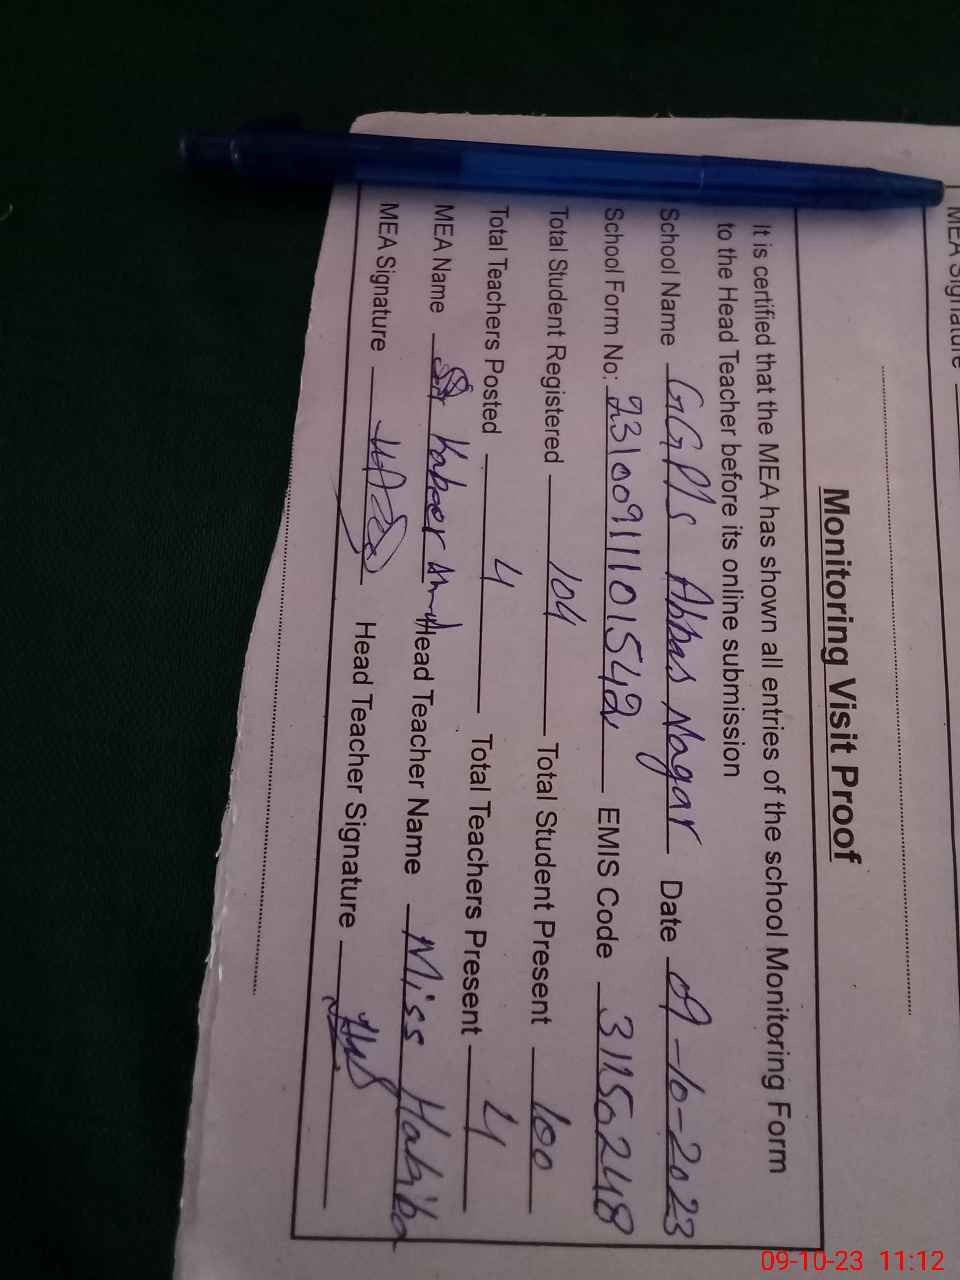 MEA Signature
Monitoring Visit Proof
It is certified that the MEA has shown all entries of the school Monitoring Form
to the Head Teacher before its online submission
School Name GGPS Abbas Nagar Date 09-10-2023
School Form No: 23100911101542 EMIS Code 31150248
Total Student Registered 104 Total Student Present 100
Total Teachers Posted 4 Total Teachers Present 4
MEA Name Kabeer Head Teacher Name Miss Habiba
MEA Signature Head Teacher Signature
09-10-23 11:12